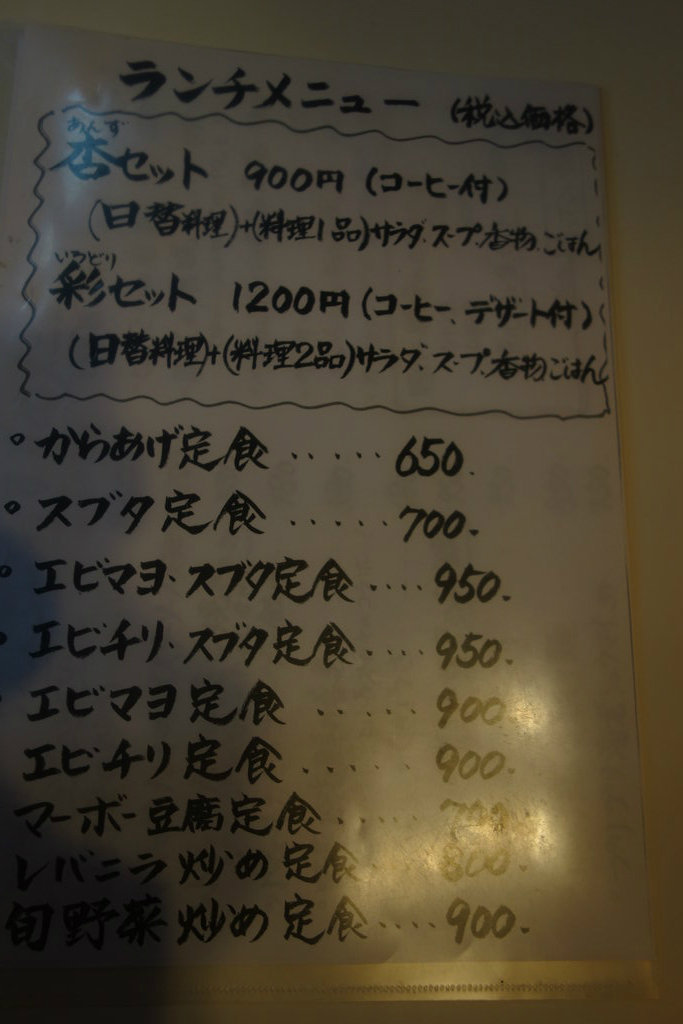 ランチメニュー (税込価格)
あんず
杏セット 900円 (コーヒー付)
(日替料理)+(料理1品)サラダ.スープ.香物.ごはん
いろどり
彩セット 1200円 (コーヒー、デザート付)
(日替料理)+(料理2品)サラダ.スープ.香物.ごはん
。からあげ定食 ..... 650.
。スブタ定食 ..... 700.
。エビマヨ・スブタ定食 .... 950.
・エビチリ・スブタ定食 .... 950.
・エビマヨ定食 ..... 900
エビチリ定食 ..... 900.
マーボー豆腐定食 ....
レバニラ炒め定食 ... 800.
旬野菜炒め定食 .... 900.